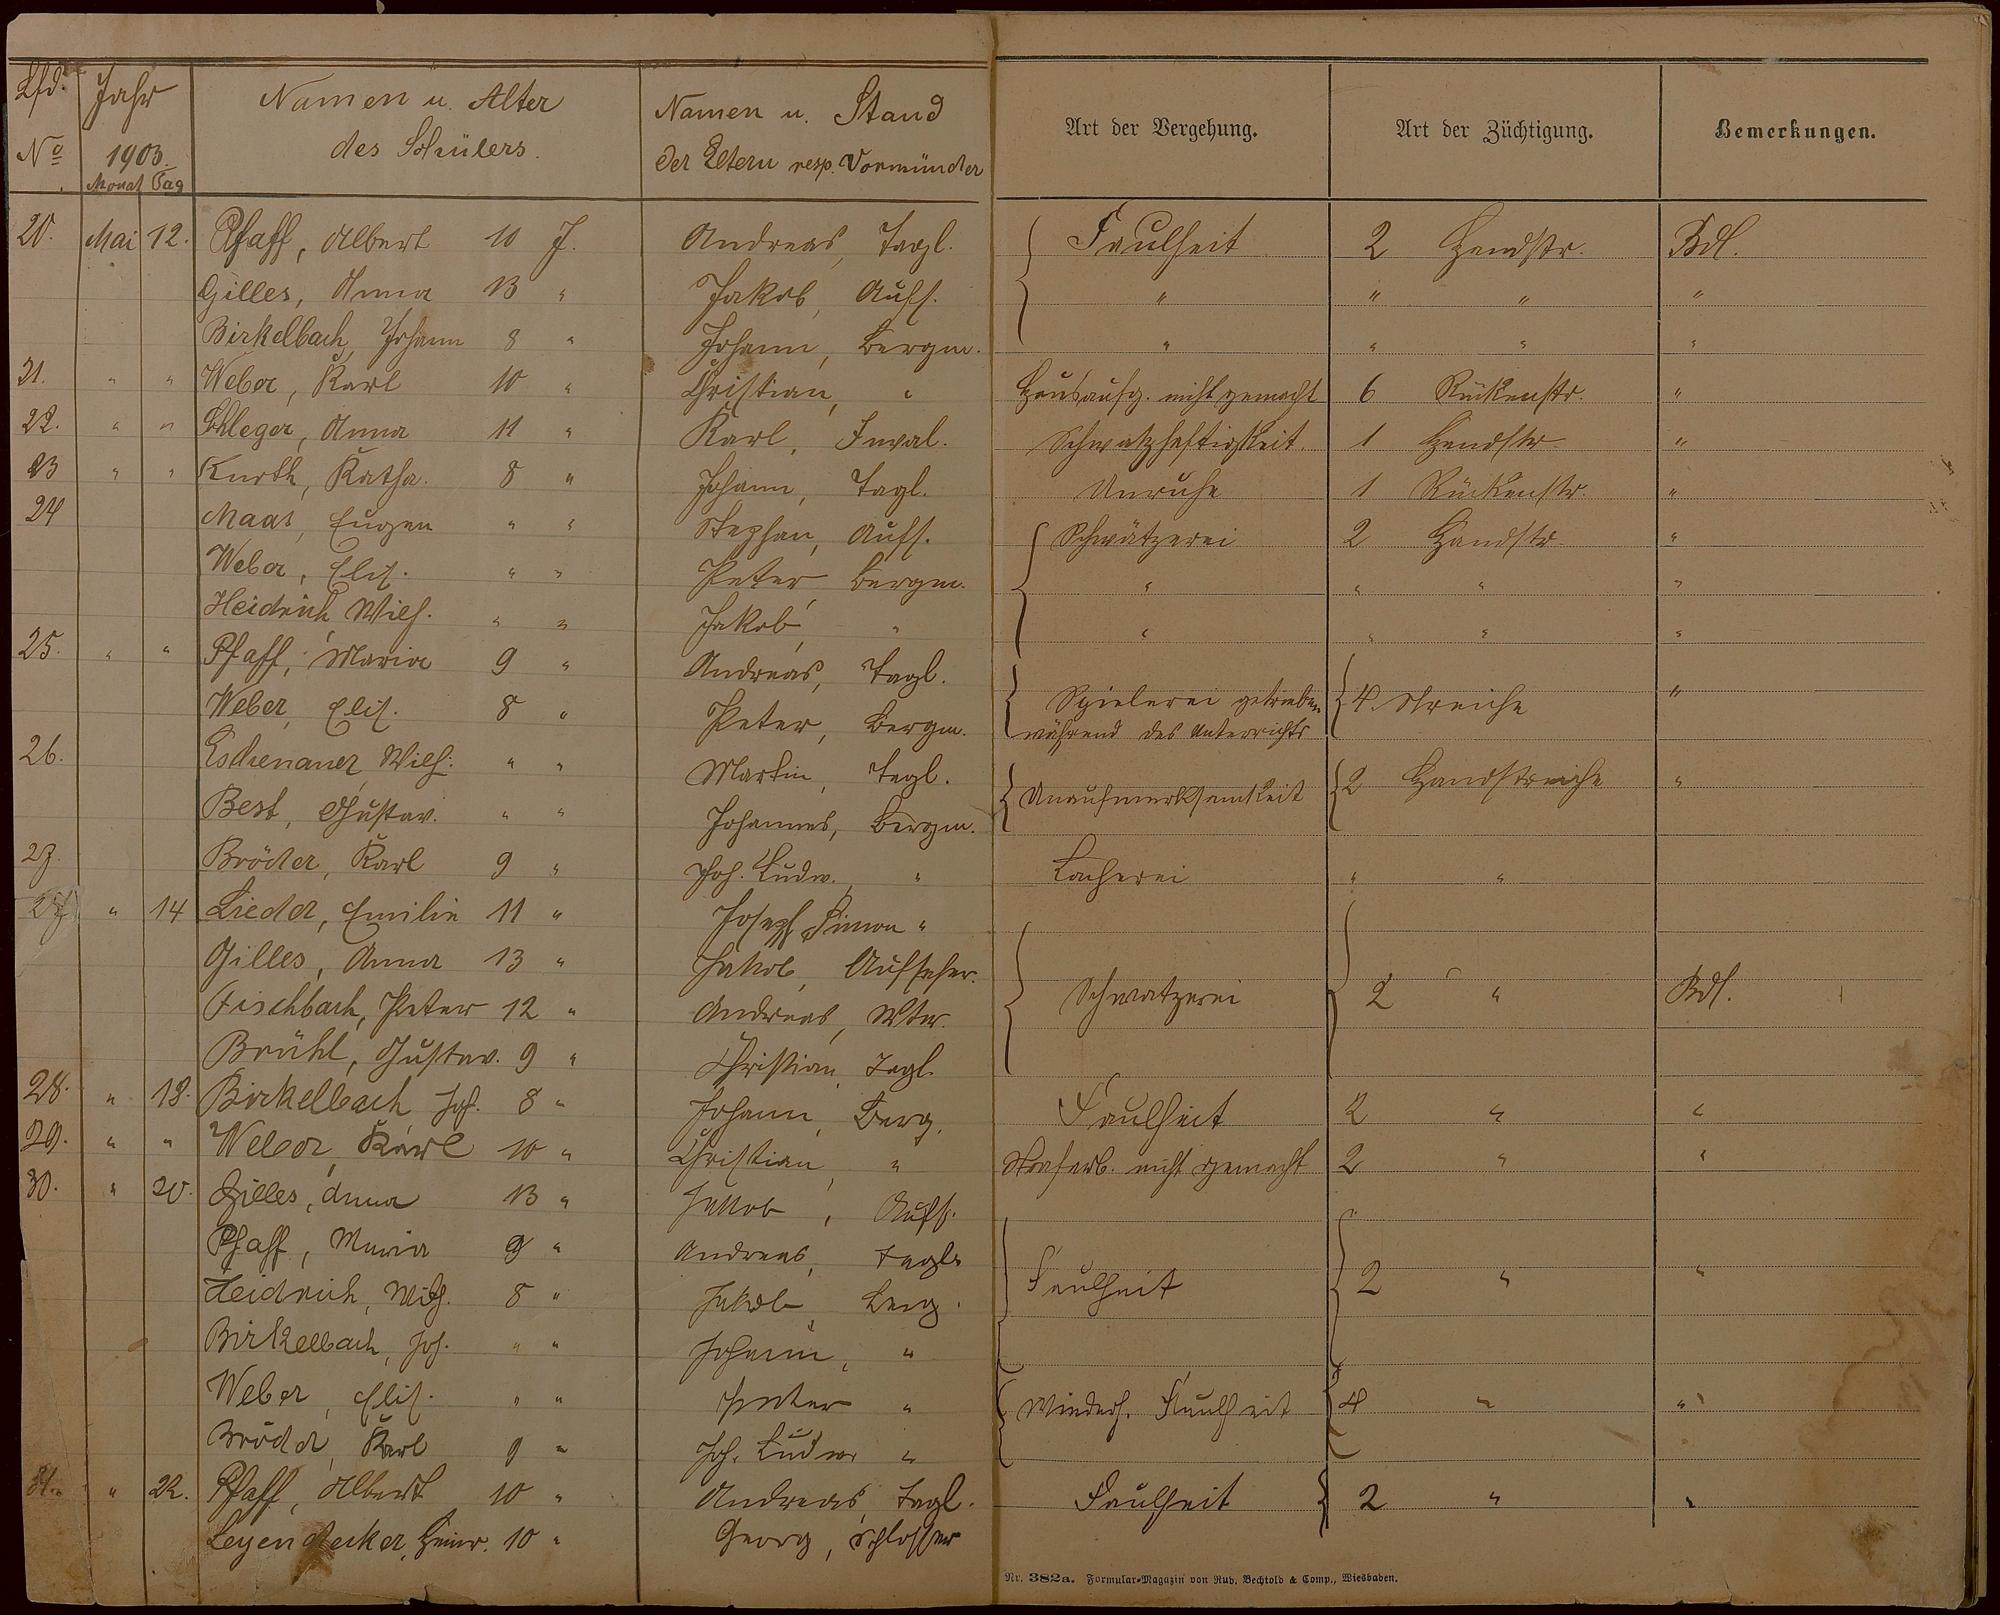 Lfd. Jahr Namen u. Alter Namen u. Stand Art der Vergehung. Art der Züchtigung. Bemerkungen.
No 1903. des Schülers. der Eltern resp. Vormünder
Monat Tag
20. Mai 12. Pfaff, Albert 10 J. Andreas, Tagl. Faulheit 2 Handstr. Bdl.
Gilles, Anna 13 " Jakob, Aufs. " " " "
Birkelbach, Johann 8 " Johann, Bergm. " " " "
21. " " Weber, Karl 10 " Christian, " Hausaufg. nicht gemacht 6 Rückenstr. "
22. " " Schleger, Anna 11 " Karl, Inval. Schwatzhaftigkeit. 1 Handstr. "
23 " " Kurth, Katha. 8 " Johann, Tagl. Unruhe 1 Rückenstr. "
24 Maas, Eugen " " Stephan, Aufs. Schwätzerei 2 Handstr. "
Weber, Elis. " " Peter, Bergm. " " " "
Heidrich, Wilh. " " Jakob, " " " " "
25. " " Pfaff, Maria 9 " Andreas, Tagl. Spielerei getrieben 4. Streiche "
Weber, Elis. 8 " Peter, Bergm. während des Unterrichts
26. Eschenauer, Wilh. " " Martin, Tagl. Unaufmerksamkeit 2 Handstreiche "
Best, Gustav. " " Johannes, Bergm.
27. Bröder, Karl 9 " Joh. Ludw., " Lacherei " "
27 " 14 Lieder, Emilie 11 " Joseph Simon "
Gilles, Anna 13 " Jakob, Aufseher. Schwatzerei 2 " Bdl.
Fischbach, Peter 12 " Andreas, Wtw.
Brühl, Gustav. 9 " Christian, Tagl.
28. " 18. Birkelbach Joh. 8 " Johann, Berg. Faulheit 2 " "
29. " " Weber, Karl 10 " Christian, " Strafarb. nicht gemacht 2 " "
30. " 20. Gilles, Anna 13 " Jakob, Aufs.
Pfaff, Maria 9 " Andreas, Tagl. Faulheit 2 " "
Heidrich, Wilh. 8 " Jakob, Berg.
Birkelbach, Joh. " " Johann, "
Weber, Elis. " " Peter " Wiederh. Faulheit 4 " "
Bröder, Karl 9 " Joh. Ludw. "
31. " 22. Pfaff, Albert 10 " Andreas, Tagl. Faulheit 2 " "
Leyendecker, Heinr. 10 " Georg, Schlosser
Nr. 382a. Formular-Magazin von Rud. Bechtold & Comp., Wiesbaden.